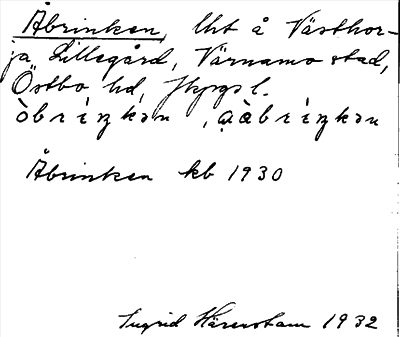 Åbrinken, lht å Västhor-
ja Lillegård, Värnamo stad,
Östbo hd, Jkpgs l.
òbrìŋkən, ạàbrìŋkən
Åbrinken kb 1930
Ingrid Härenstam 1932